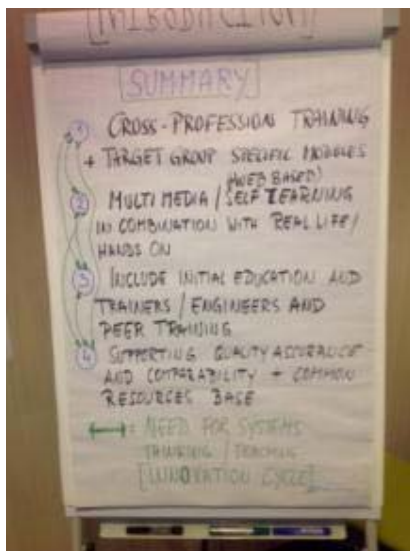 INTRODUCTION
SUMMARY
1 CROSS-PROFESSION TRAINING
+ TARGET GROUP SPECIFIC MODULES
(WEB BASED)
2 MULTI MEDIA / SELF LEARNING
IN COMBINATION WITH REAL LIFE /
HANDS ON
3 INCLUDE INITIAL EDUCATION AND
TRAINERS / ENGINEERS AND
PEER TRAINING
4 SUPPORTING QUALITY ASSURANCE
AND COMPARABILITY + COMMON
RESOURCES BASE
↔ = NEED FOR SYSTEMS
THINKING / TEACHING
[INNOVATION CYCLE]